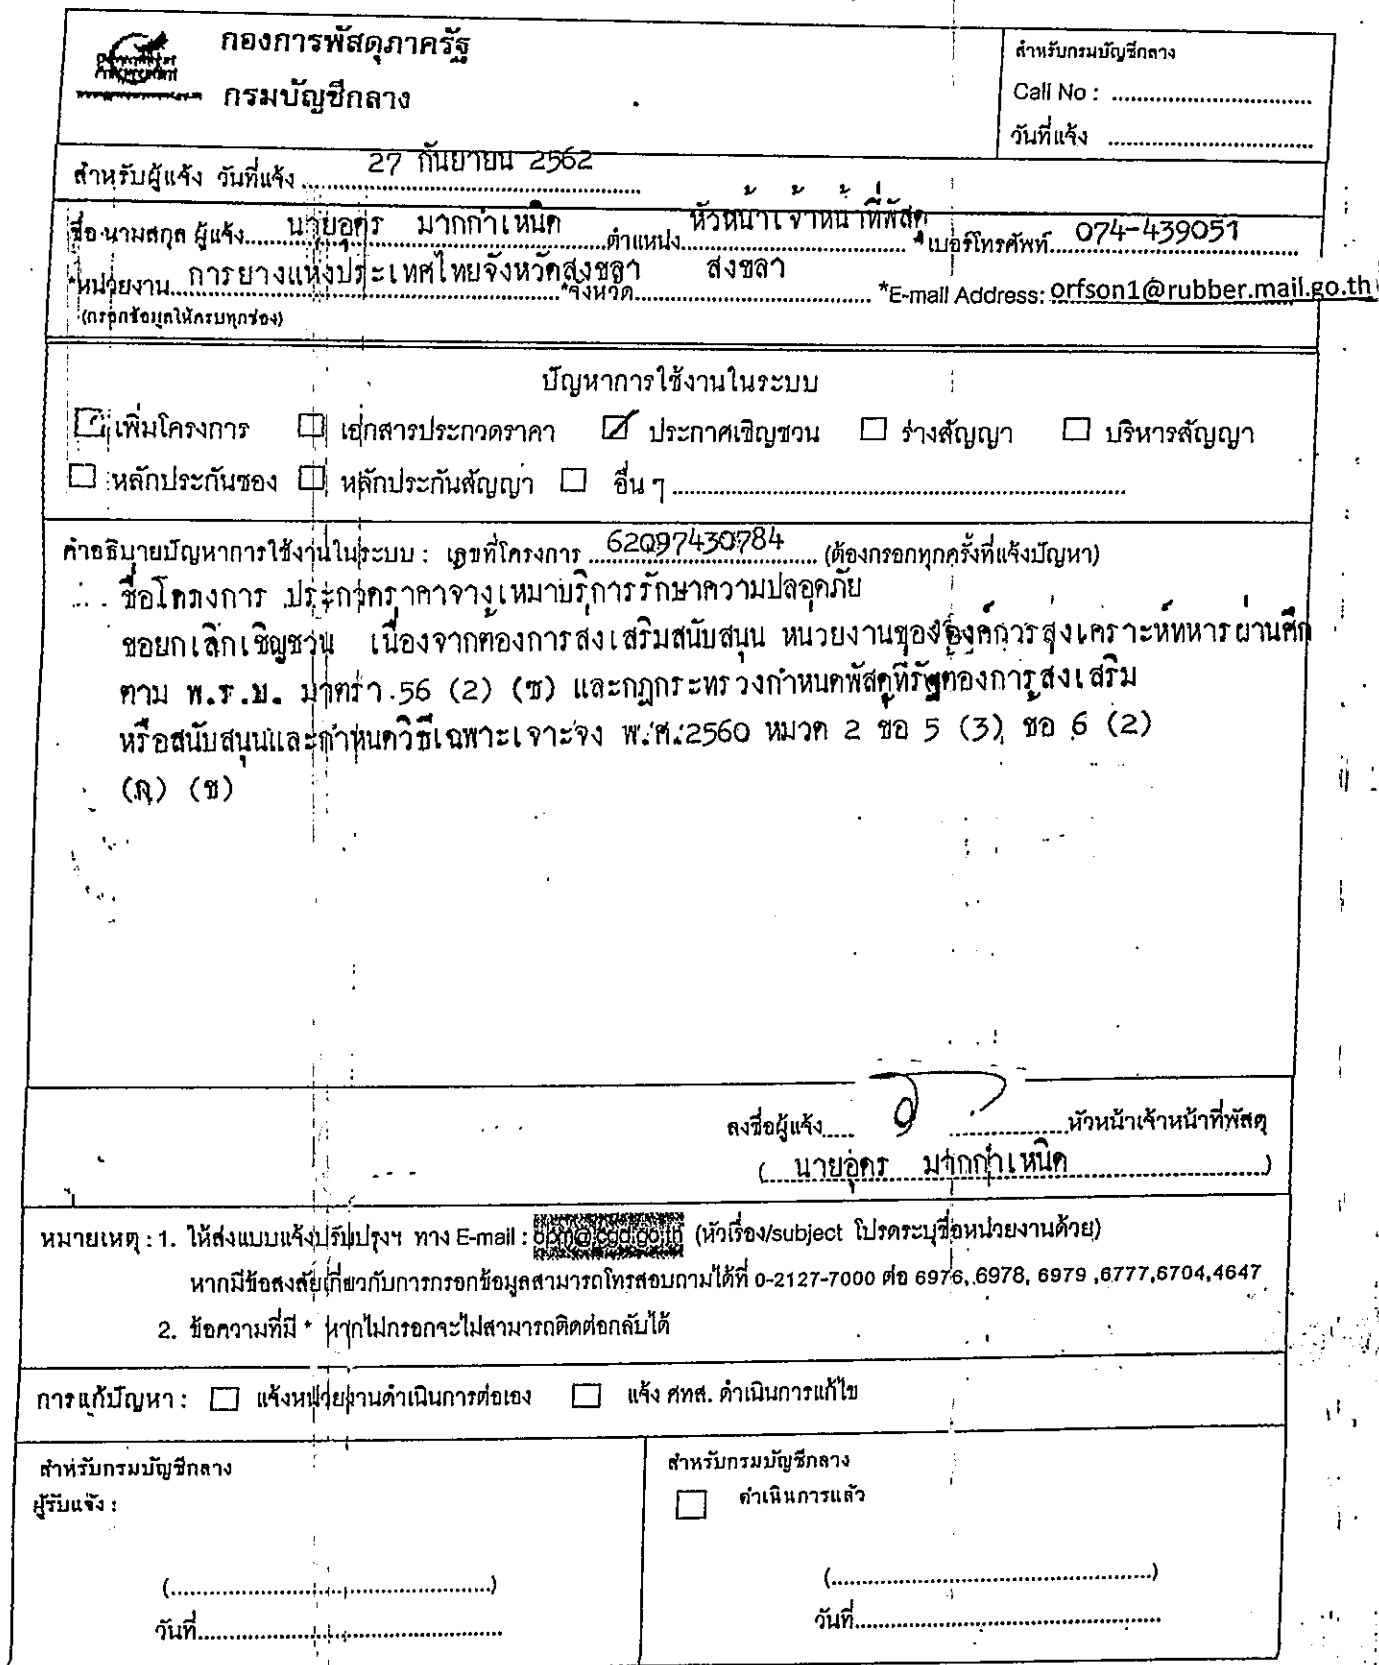 กองการพัสดุภาครัฐ
กรมบัญชีกลาง
สำหรับกรมบัญชีกลาง
Call No : ................................
วันที่แจ้ง ................................
สำหรับผู้แจ้ง วันที่แจ้ง ..... 27 กันยายน 2562 .....
ชื่อ นามสกุล ผู้แจ้ง..... นายอุดร มากกำเหนิด .....ตำแหน่ง. หัวหน้าเจ้าหน้าที่พัสดุ ..... *เบอร์โทรศัพท์. 074-439051
*หน่วยงาน.. การยางแห่งประเทศไทยจังหวัดสงขลา ..*จังหวัด..... สงขลา ..... *E-mail Address: orfson1@rubber.mail.go.th
(กรอกข้อมูลให้ครบทุกช่อง)
ปัญหาการใช้งานในระบบ
☐ เพิ่มโครงการ ☐ เอกสารประกวดราคา ☑ ประกาศเชิญชวน ☐ ร่างสัญญา ☐ บริหารสัญญา
☐ หลักประกันซอง ☐ หลักประกันสัญญา ☐ อื่น ๆ ................................
คำอธิบายปัญหาการใช้งานในระบบ : เลขที่โครงการ ...62097430784..... (ต้องกรอกทุกครั้งที่แจ้งปัญหา)
ชื่อโครงการ ประกวดราคาจางเหมาบริการรักษาความปลอดภัย
ขอยกเลิกเชิญชวน เนื่องจากต้องการส่งเสริมสนับสนุน หนวยงานขององค์การสงเคราะห์ทหารผ่านศึก
ตาม พ.ร.บ. มาตรา 56 (2) (ช) และกฎกระทรวงกำหนดพัสดุที่รัฐต้องการส่งเสริม
หรือสนับสนุนและกำหนดวิธีเฉพาะเจาะจง พ.ศ.2560 หมวด 2 ขอ 5 (3) ขอ 6 (2)
(ข)
ลงชื่อผู้แจ้ง..... .....หัวหน้าเจ้าหน้าที่พัสดุ
(... นายอุดร มากกำเหนิด .....)
หมายเหตุ : 1. ให้ส่งแบบแจ้งปรับปรุงฯ ทาง E-mail : opm@cgd.go.th (หัวเรื่อง/subject โปรดระบุชื่อหน่วยงานด้วย)
หากมีข้อสงสัยเกี่ยวกับการกรอกข้อมูลสามารถโทรสอบถามได้ที่ 0-2127-7000 ต่อ 6976, 6978, 6979 ,6777,6704,4647
2. ข้อความที่มี * หากไม่กรอกจะไม่สามารถติดต่อกลับได้
การแก้ปัญหา : ☐ แจ้งหน่วยงานดำเนินการต่อเอง ☐ แจ้ง ศทส. ดำเนินการแก้ไข
สำหรับกรมบัญชีกลาง
ผู้รับแจ้ง :
(................................)
วันที่................................
สำหรับกรมบัญชีกลาง
☐ ดำเนินการแล้ว
(................................)
วันที่................................